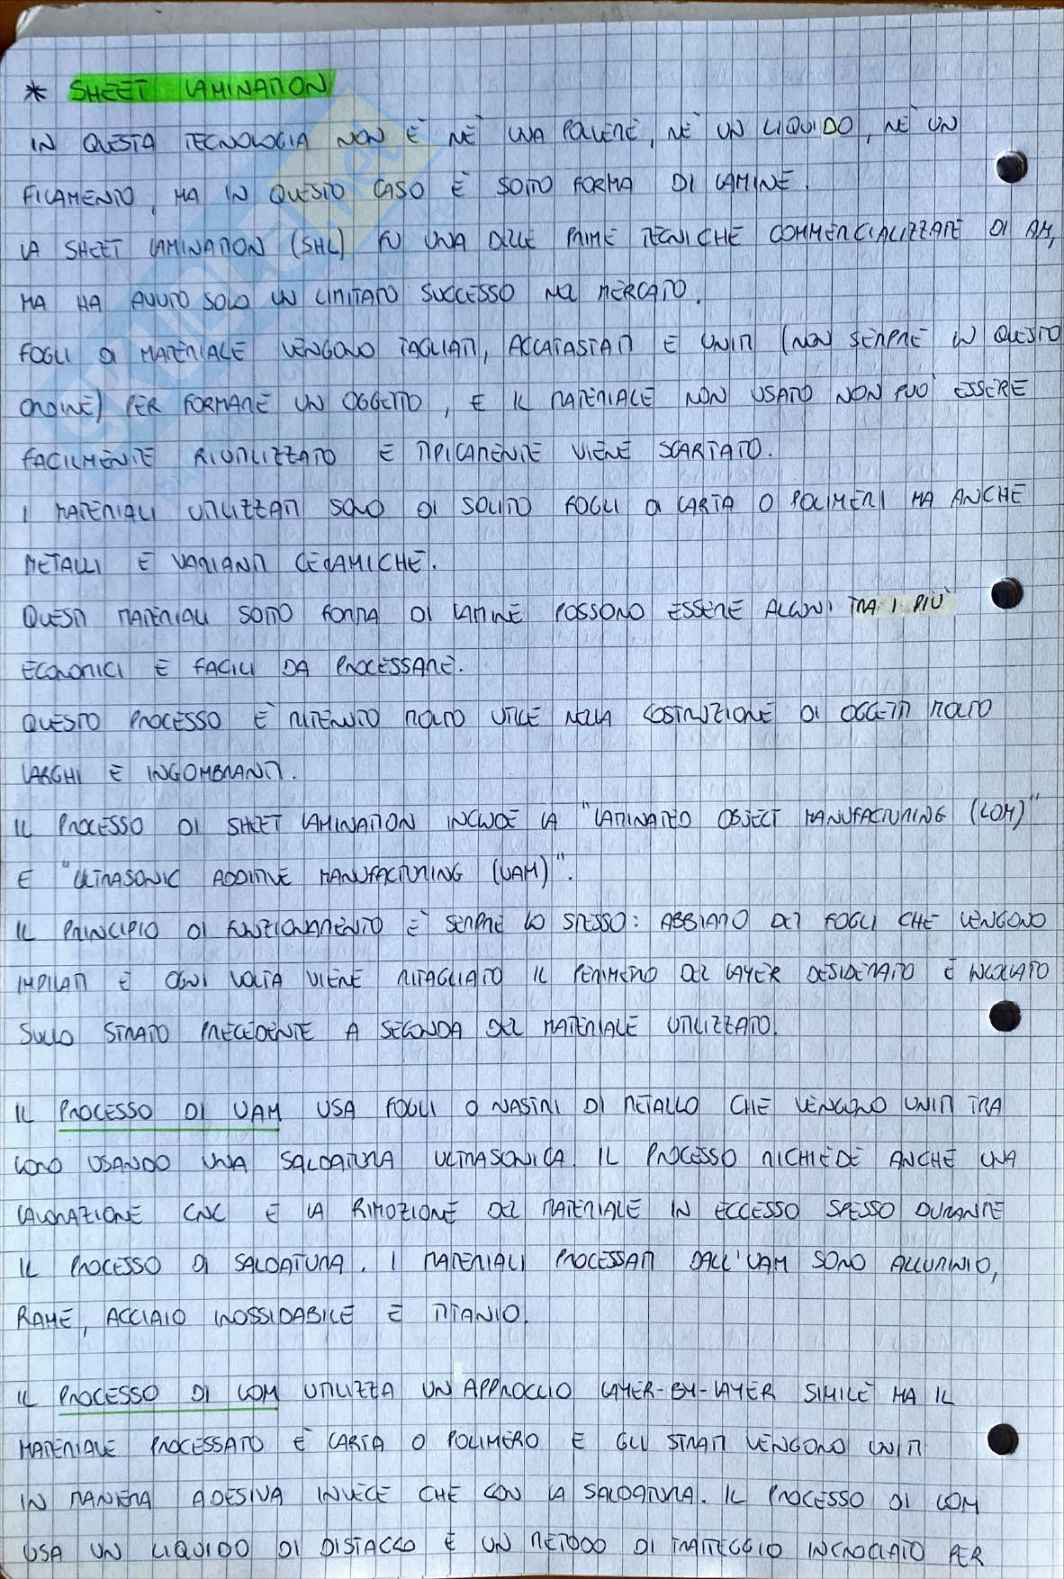 * SHEET LAMINATION
IN QUESTA TECNOLOGIA NON È NÈ UNA POLVERE, NÈ UN LIQUIDO, NÈ UN
FILAMENTO, MA IN QUESTO CASO È SOTTO FORMA DI LAMINE.
LA SHEET LAMINATION (SHL) FU UNA DELLE PRIME TECNICHE COMMERCIALIZZATE DI AM,
MA HA AVUTO SOLO UN LIMITATO SUCCESSO NEL MERCATO.
FOGLI DI MATERIALE VENGONO TAGLIATI, ACCATASTATI E UNITI (NON SEMPRE IN QUESTO
ORDINE) PER FORMARE UN OGGETTO, E IL MATERIALE NON USATO NON PUÒ ESSERE
FACILMENTE RIUTILIZZATO E TIPICAMENTE VIENE SCARTATO.
I MATERIALI UTILIZZATI SONO DI SOLITO FOGLI DI CARTA O POLIMERI MA ANCHE
METALLI E VARIANTI CERAMICHE.
QUESTI MATERIALI SOTTO FORMA DI LAMINE POSSONO ESSERE ALCUNI TRA I PIÙ
ECONOMICI E FACILI DA PROCESSARE.
QUESTO PROCESSO È RITENUTO MOLTO UTILE NELLA COSTRUZIONE DI OGGETTI MOLTO
LARGHI E INGOMBRANTI.
IL PROCESSO DI SHEET LAMINATION INCLUDE LA "LAMINATED OBJECT MANUFACTURING (LOM)"
E "ULTRASONIC ADDITIVE MANUFACTURING (UAM)".
IL PRINCIPIO DI FUNZIONAMENTO È SEMPRE LO STESSO: ABBIAMO DEI FOGLI CHE VENGONO
IMPILATI E OGNI VOLTA VIENE RITAGLIATO IL PERIMETRO DEL LAYER DESIDERATO E INCOLLATO
SULLO STRATO PRECEDENTE A SECONDA DEL MATERIALE UTILIZZATO.
IL PROCESSO DI UAM USA FOGLI O NASTRI DI METALLO CHE VENGONO UNITI TRA
LORO USANDO UNA SALDATURA ULTRASONICA. IL PROCESSO RICHIEDE ANCHE UNA
LAVORAZIONE CNC E LA RIMOZIONE DEL MATERIALE IN ECCESSO SPESSO DURANTE
IL PROCESSO DI SALDATURA. I MATERIALI PROCESSATI DALL'UAM SONO ALLUMINIO,
RAME, ACCIAIO INOSSIDABILE E TITANIO.
IL PROCESSO DI LOM UTILIZZA UN APPROCCIO LAYER-BY-LAYER SIMILE MA IL
MATERIALE PROCESSATO È CARTA O POLIMERO E GLI STRATI VENGONO UNITI
IN MANIERA ADESIVA INVECE CHE CON LA SALDATURA. IL PROCESSO DI LOM
USA UN LIQUIDO DI DISTACCO E UN METODO DI TRATTEGGIO INCROCIATO PER